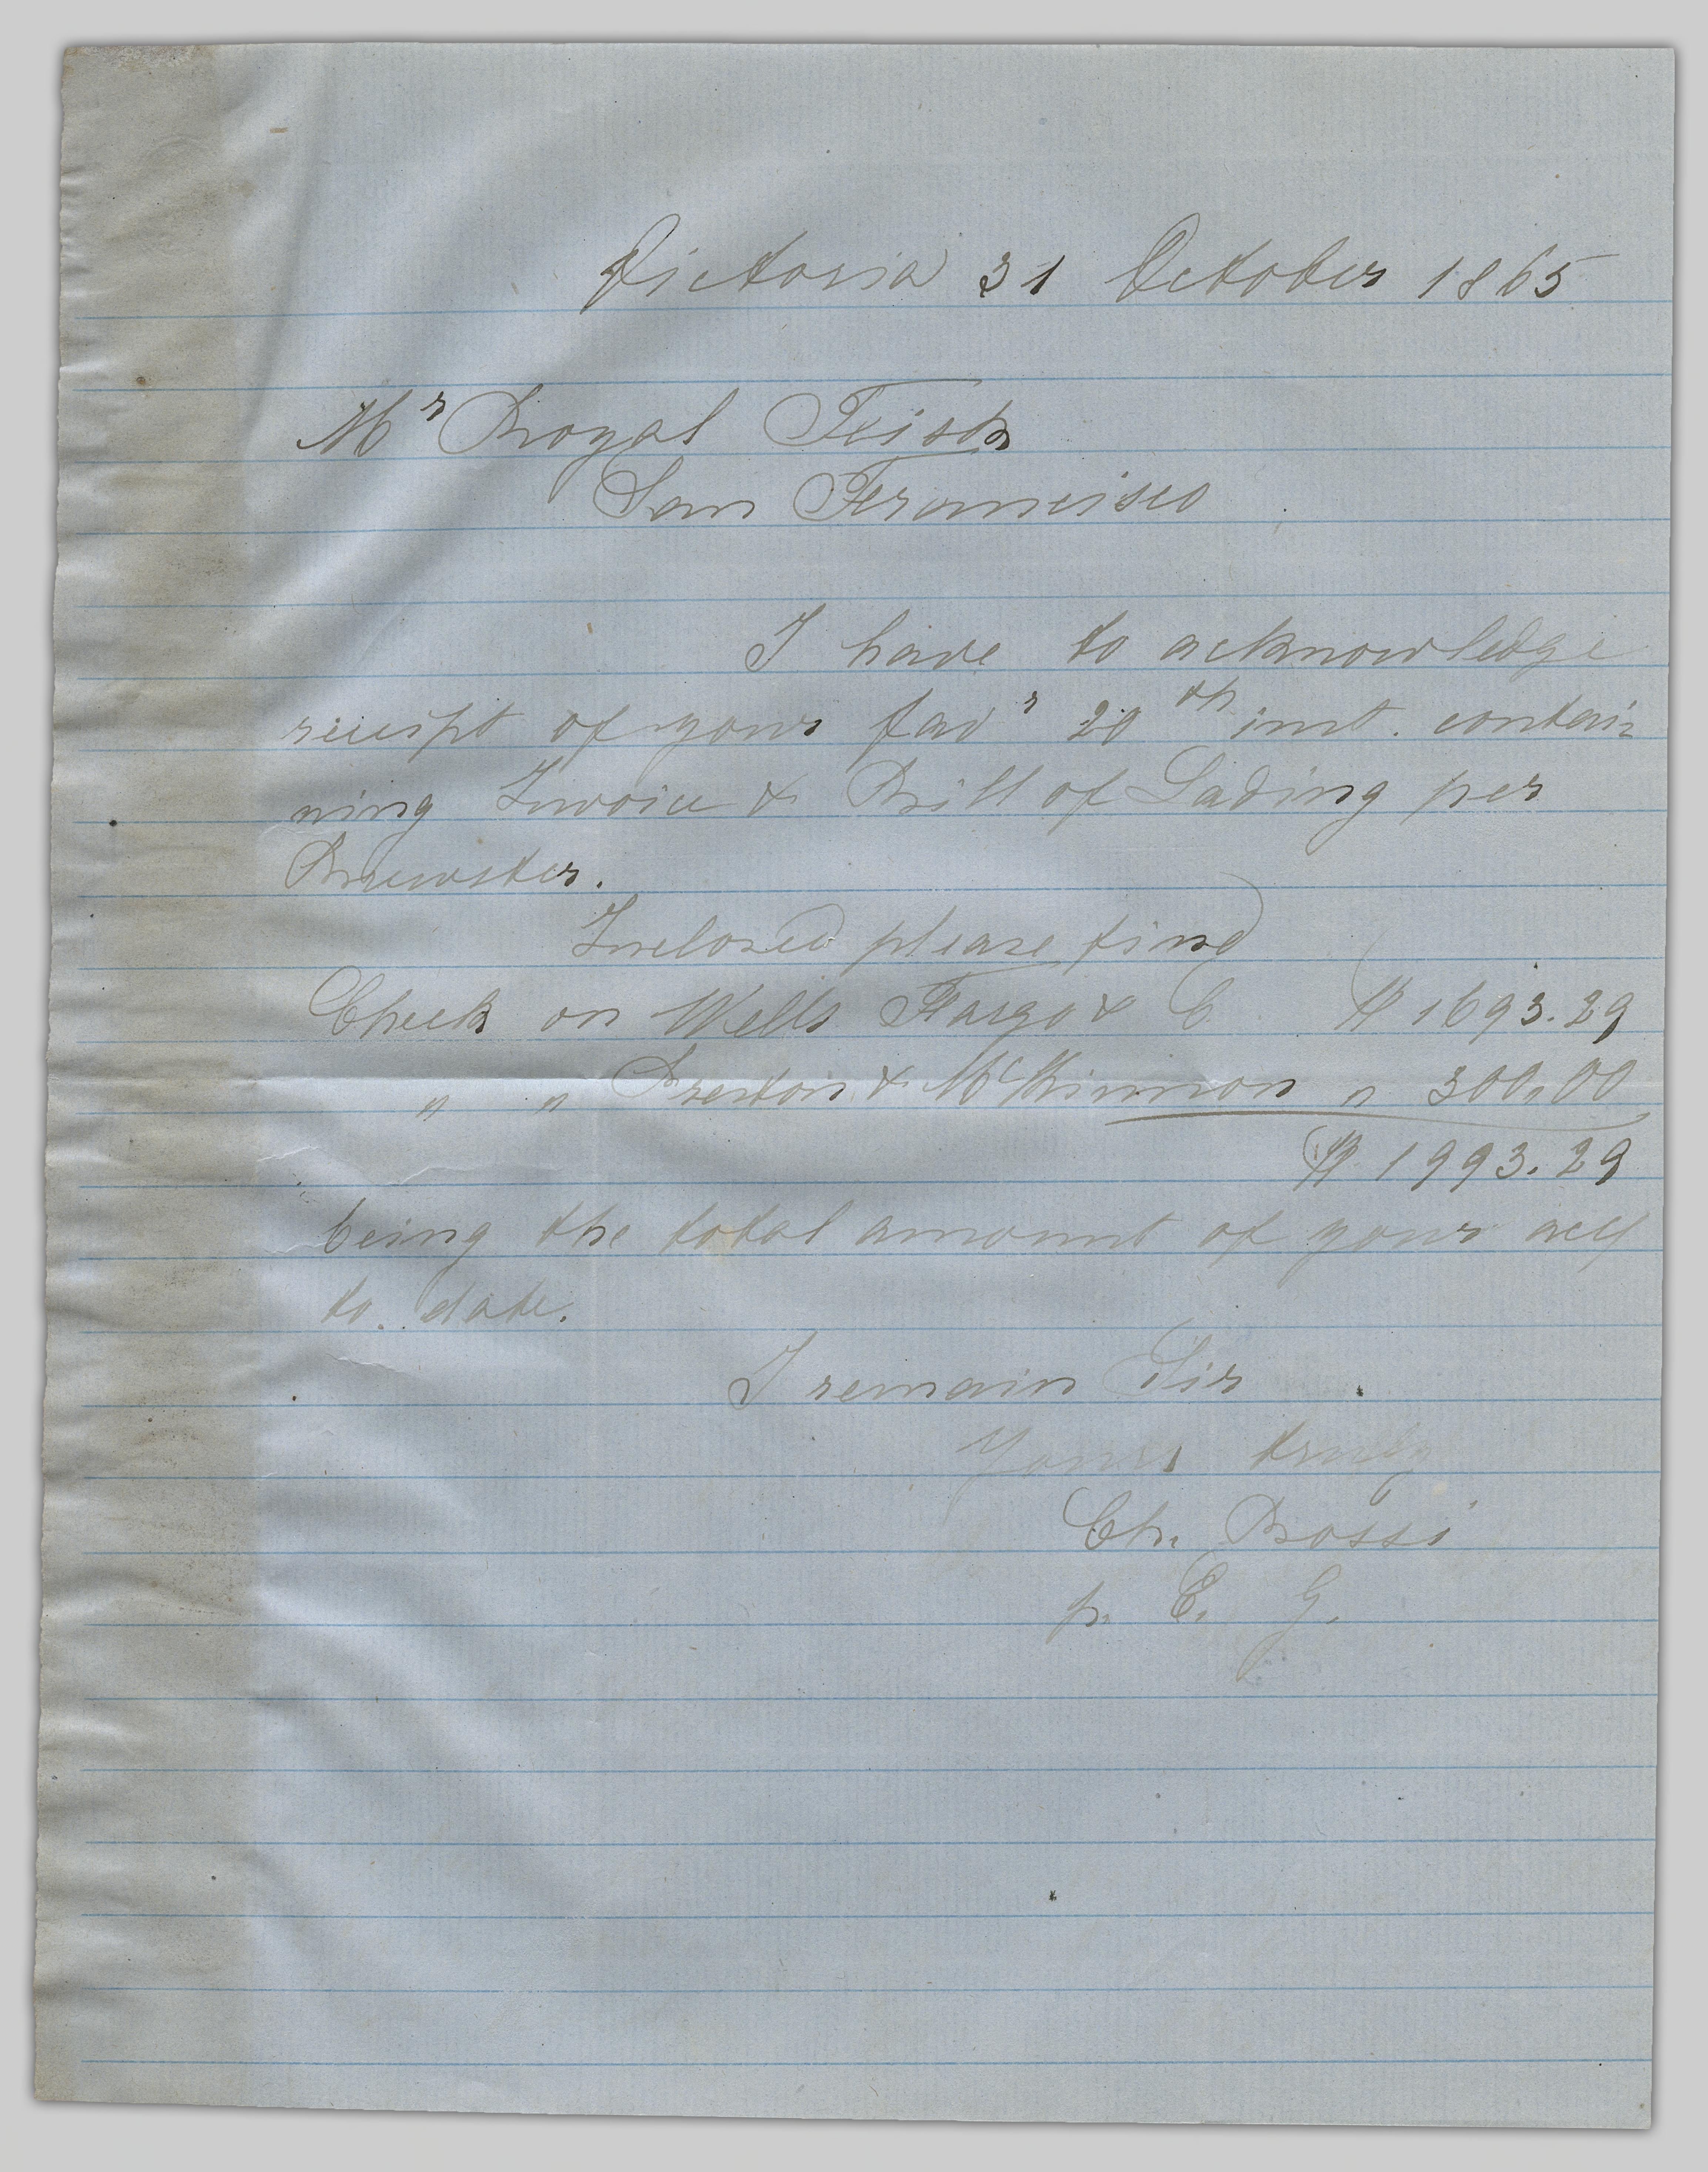 Victoria 31 October 1865
Mr Royal Fisk
San Francisco
I have to acknowledge
receipt of your favr 20th inst. contai-
ning Invoice & Bill of Lading per
Brewster.
Inclosed please find
Check on Wells Fargo & C $ 1693.29
" " Preston & McKinnon " 300,00
$ 1993.29
being the total amount of your acct
to date.
I remain Sir
Yours truly
Ch. Bossi
p. E. G.